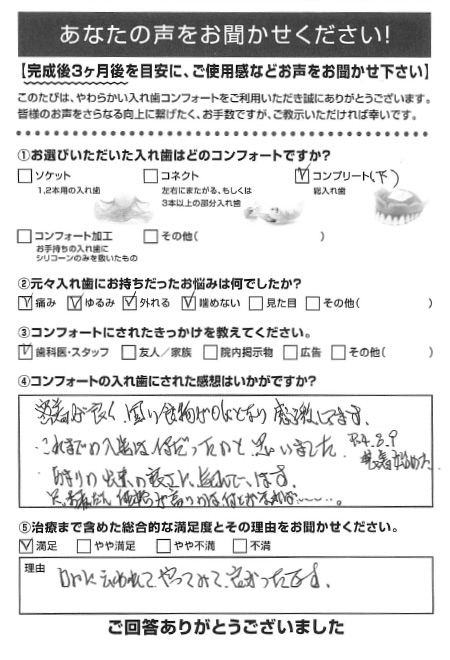 あなたの声をお聞かせください!
【完成後3ヶ月後を目安に、ご使用感などお声をお聞かせ下さい】
このたびは、やわらかい入れ歯コンフォートをご利用いただき誠にありがとうございます。
皆様のお声をさらなる向上に繋げたく、お手数ですが、ご教示いただければ幸いです。
①お選びいただいた入れ歯はどのコンフォートですか?
ソケット
1,2本用の入れ歯
コネクト
左右にまたがる、もしくは
3本以上の部分入れ歯
コンプリート(下)
総入れ歯
コンフォート加工
お手持ちの入れ歯に
シリコーンのみを敷いたもの
その他( )
②元々入れ歯にお持ちだったお悩みは何でしたか?
痛み ゆるみ 外れる 噛めない 見た目 その他( )
③コンフォートにされたきっかけを教えてください。
歯科医・スタッフ 友人/家族 院内掲示物 広告 その他( )
④コンフォートの入れ歯にされた感想はいかがですか?
が良く、固い食物がOKとなり感激してます。
これまでの入歯は何だったのかと思いました。
R4.8.9
⑤治療まで含めた総合的な満足度とその理由をお聞かせください。
満足 やや満足 やや不満 不満
理由
Drに云われてやってみて良かったです。
ご回答ありがとうございました